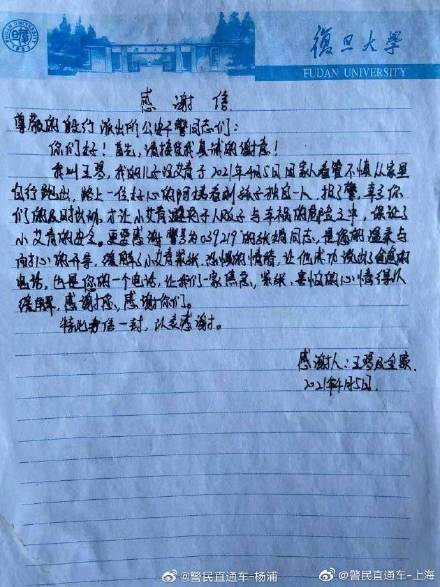 復旦大學
FUDAN UNIVERSITY
感谢信
尊敬的殷行派出所公安干警同志们:
你们好!首先,请接受我真诚的谢意!
我叫王琴,我的儿子汉艾青于2021年4月5日因家人看管不慎从家里
自行跑出,路上一位好心的阿姨看到孩子独自一人,报了警,幸了你
们的及时出动,才让小艾青避免了人贩子与车祸的危险之中,保证了
小艾青的安全。更要感谢警号为039219的张 同志,是您的温柔与
耐心的开导,缓解了小艾青紧张、恐惧的情绪,让他成功说出了爸爸的
电话,也是您的一个电话,让我们一家焦急、紧张、害怕的心情得以
缓解,感谢您,感谢你们。
特此书信一封,以表感谢。
感谢人:王琴及全家
2021年4月5日.
@警民直通车-杨浦
@警民直通车-上海